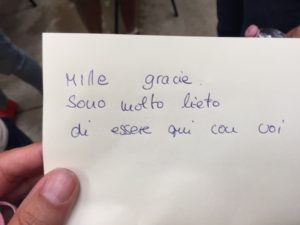 Mille gracie.
Sono molto lieto
di essere qui con voi